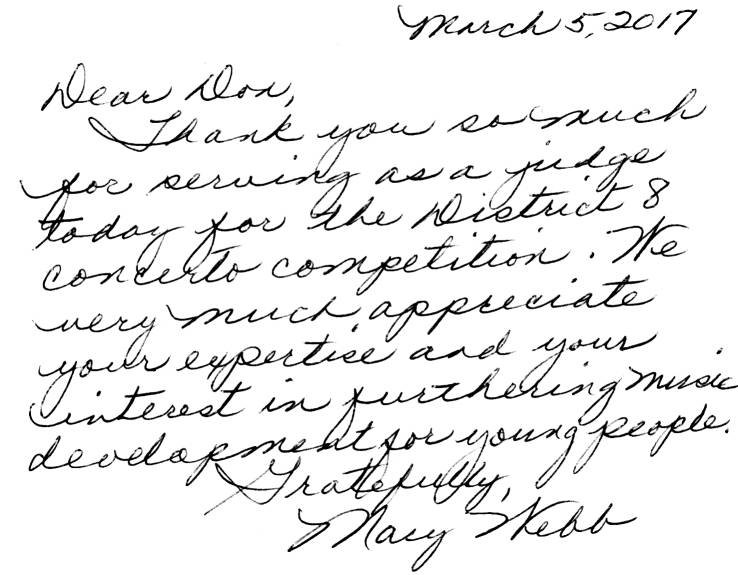 March 5, 2017
Dear Don,
Thank you so much
for serving as a judge
today for the District 8
concerto competition. We
very much appreciate
your expertise and your
interest in furthering music
development for young people.
Gratefully,
Mary Webb